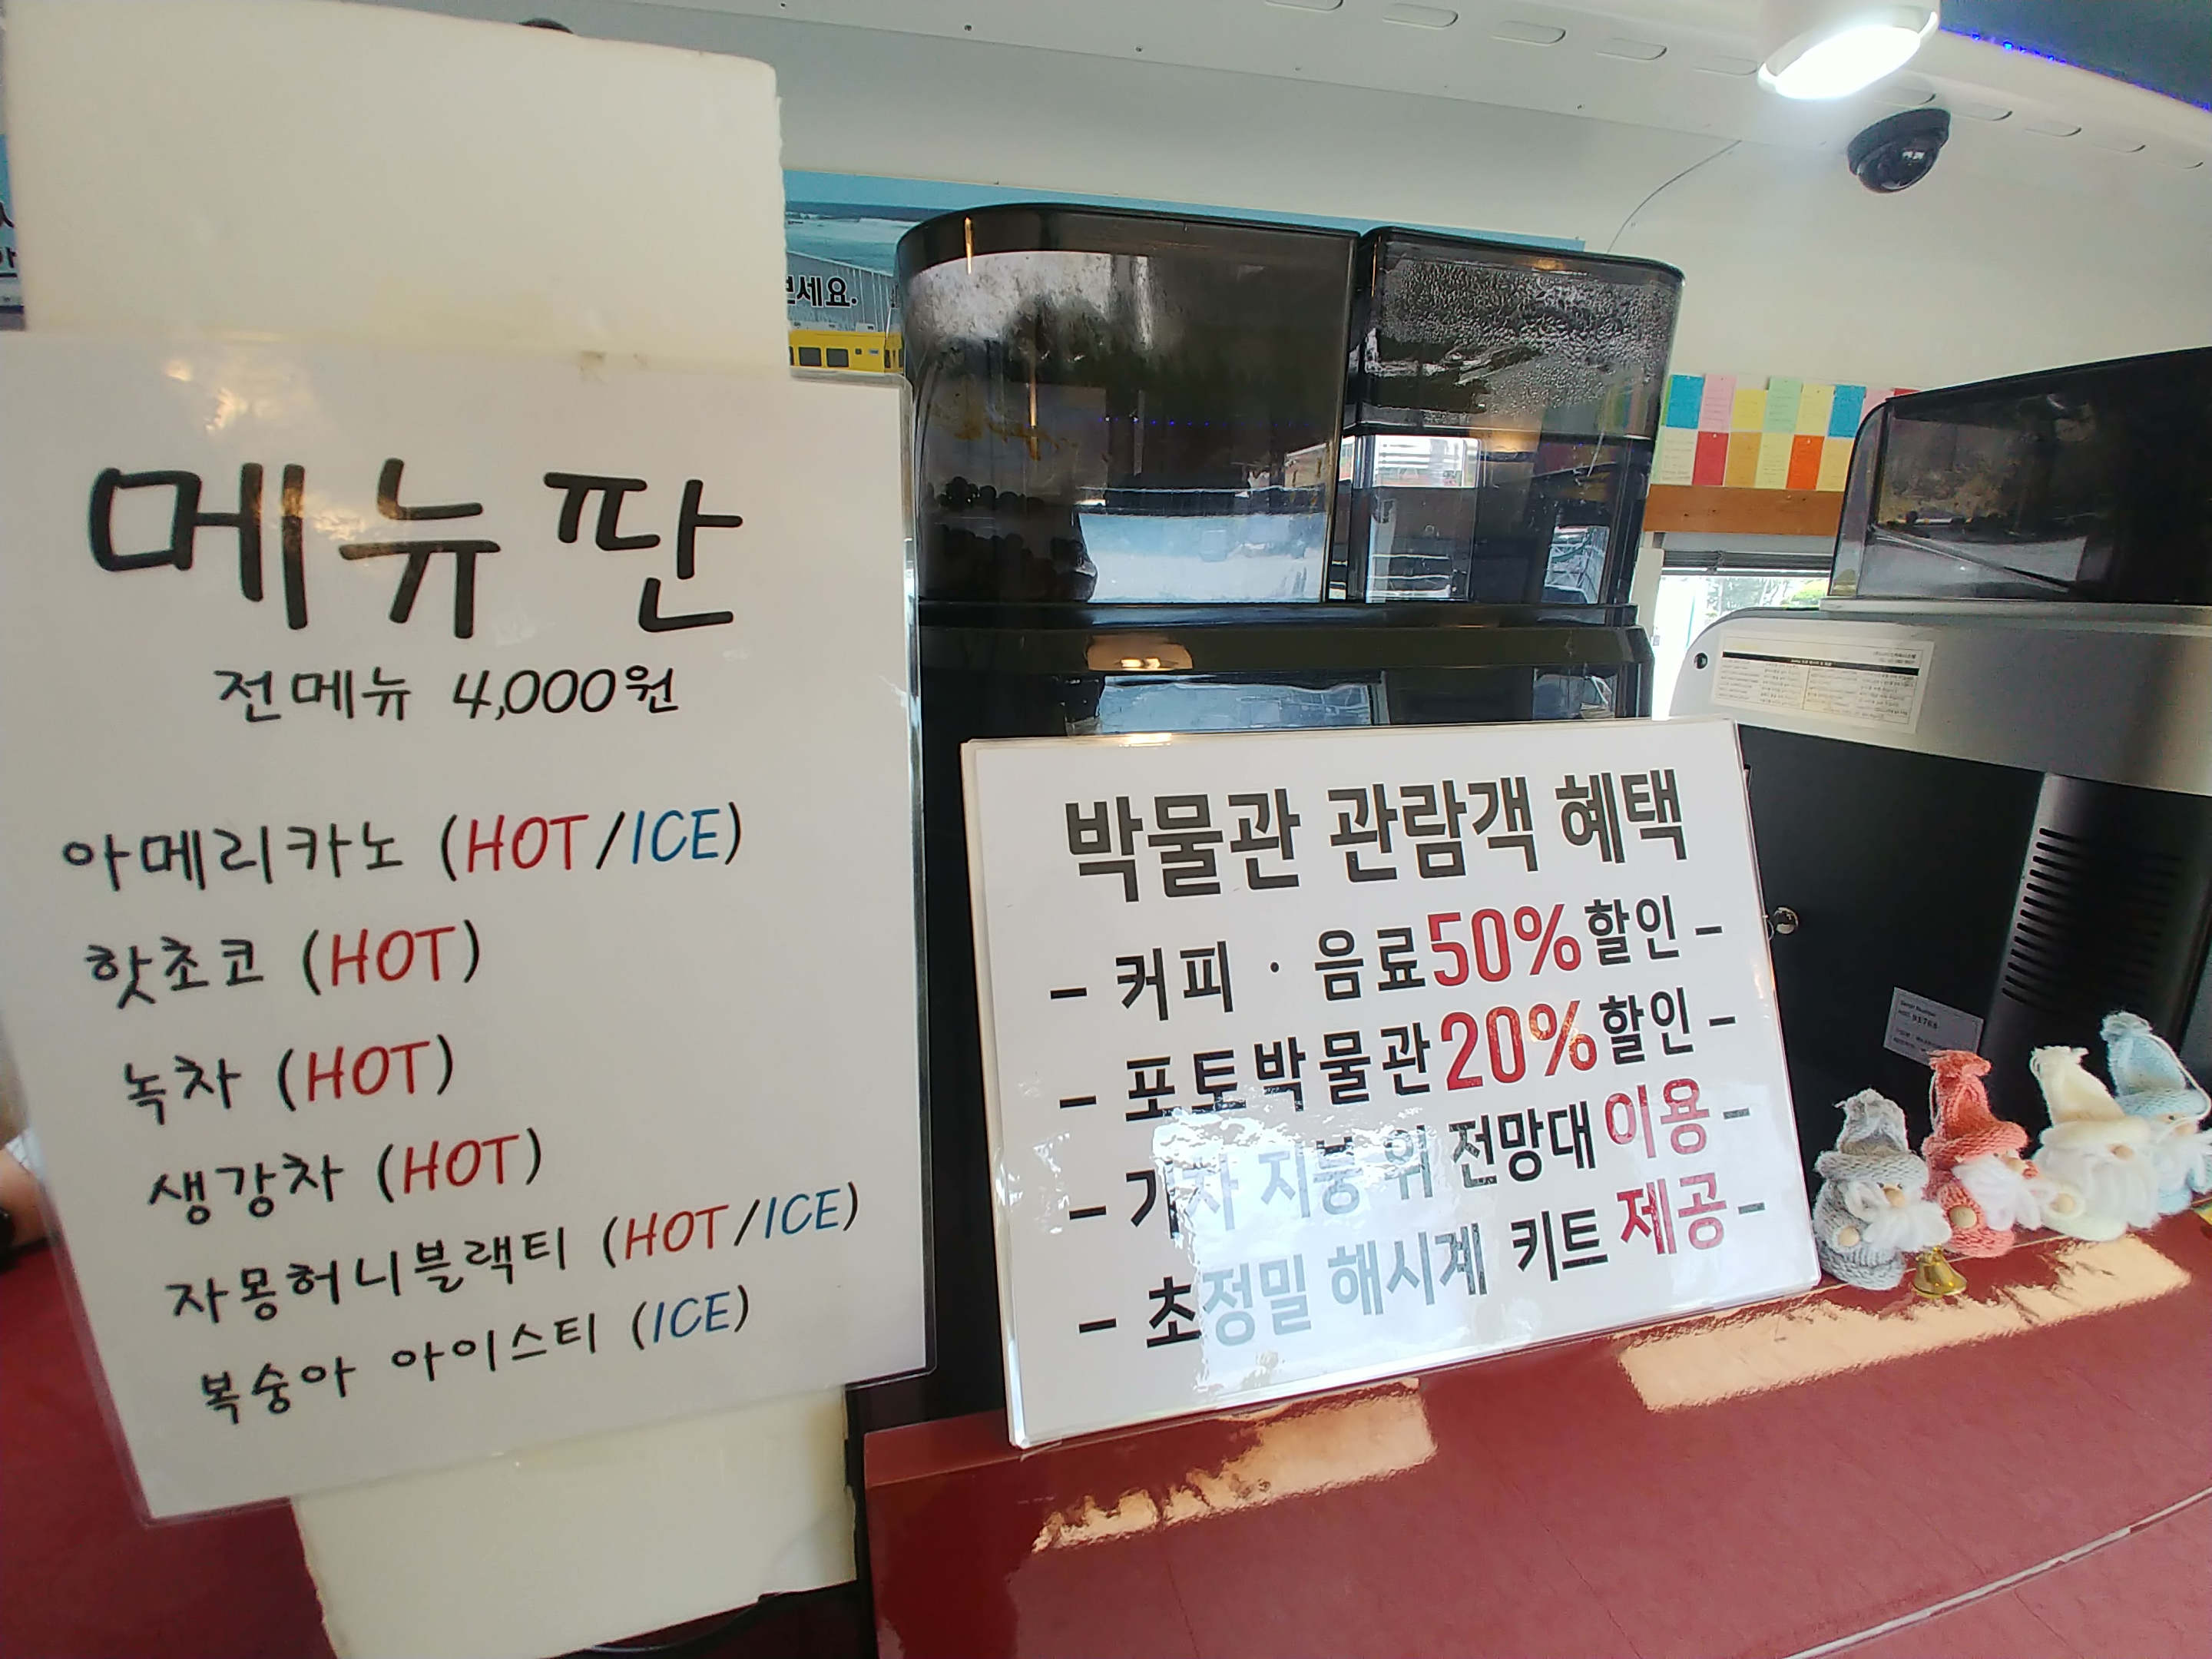 메뉴판
전메뉴 4,000원
아메리카노 (HOT/ICE)
핫초코 (HOT)
녹차 (HOT)
생강차 (HOT)
자몽허니블랙티 (HOT/ICE)
복숭아 아이스티 (ICE)
박물관 관람객 혜택
- 커피 · 음료 50% 할인 -
- 포토박물관 20% 할인 -
- 기차 지붕 위 전망대 이용 -
- 초정밀 해시계 키트 제공 -